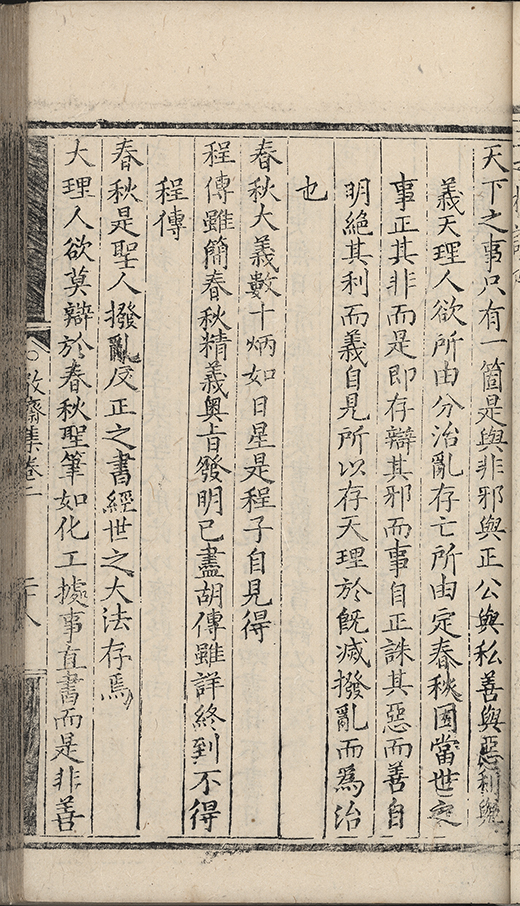 天下之事只有一箇是與非邪與正公與私善與惡利與
義天理人欲所由分治亂存亡所由定春秋因當世之
事正其非而是即存辯其邪而事自正誅其惡而善自
明絶其利而義自見所以存天理於旣滅撥亂而爲治
也
春秋大義數十炳如日星是程子自見得
程傳雖簡春秋精義奥旨發明已盡胡傳雖詳終到不得
程傳
春秋是聖人撥亂反正之書經世之大法存焉
大理人欲莫辯於春秋聖筆如化工據事直書而是非善
敬齋集卷二
二十八